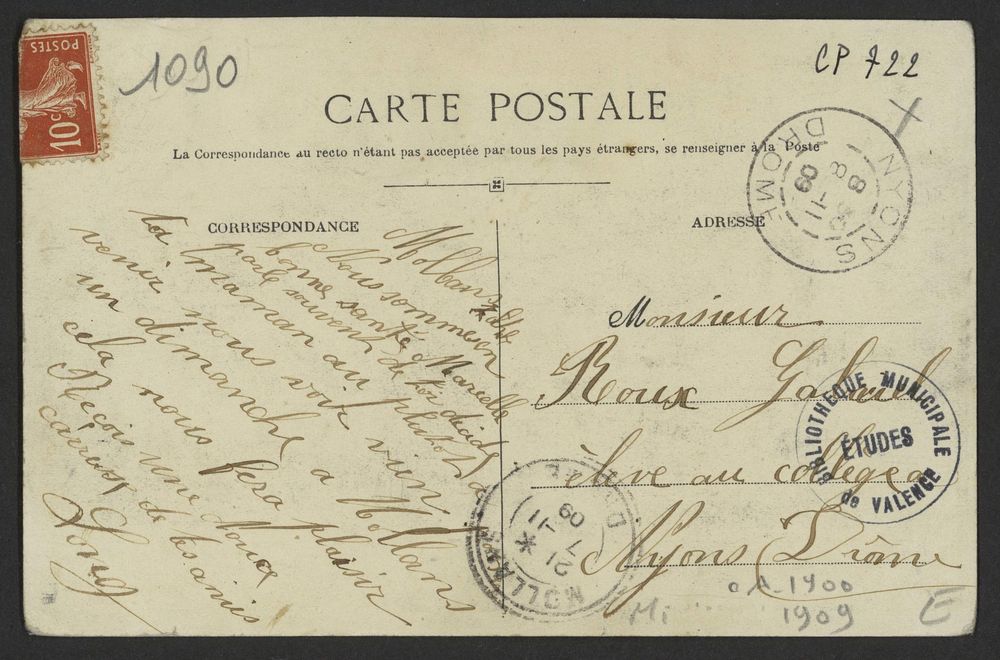 POSTES
10c
1090
CP 722
CARTE POSTALE
La Correspondance au recto n'étant pas acceptée par tous les pays étrangers, se renseigner à la Poste
CORRESPONDANCE
Mollans
Nous sommes en
bonne santé Marcelle
parle souvent de toi décide
ta maman au plutôt a
venir nous voir vien
un dimanche a Mollans
cela nous fera plaisir
Reçois une douce
caresse de tes amis
ADRESSE
Monsieur
Roux Gabriel
élève au collège a
Nyons Drôme
NYONS
DROME
8
8 -11
09
MOLLANS
DROME
21
7 -11
09
BIBLIOTHEQUE MUNICIPALE
ÉTUDES
de VALENCE
1900
1909
E